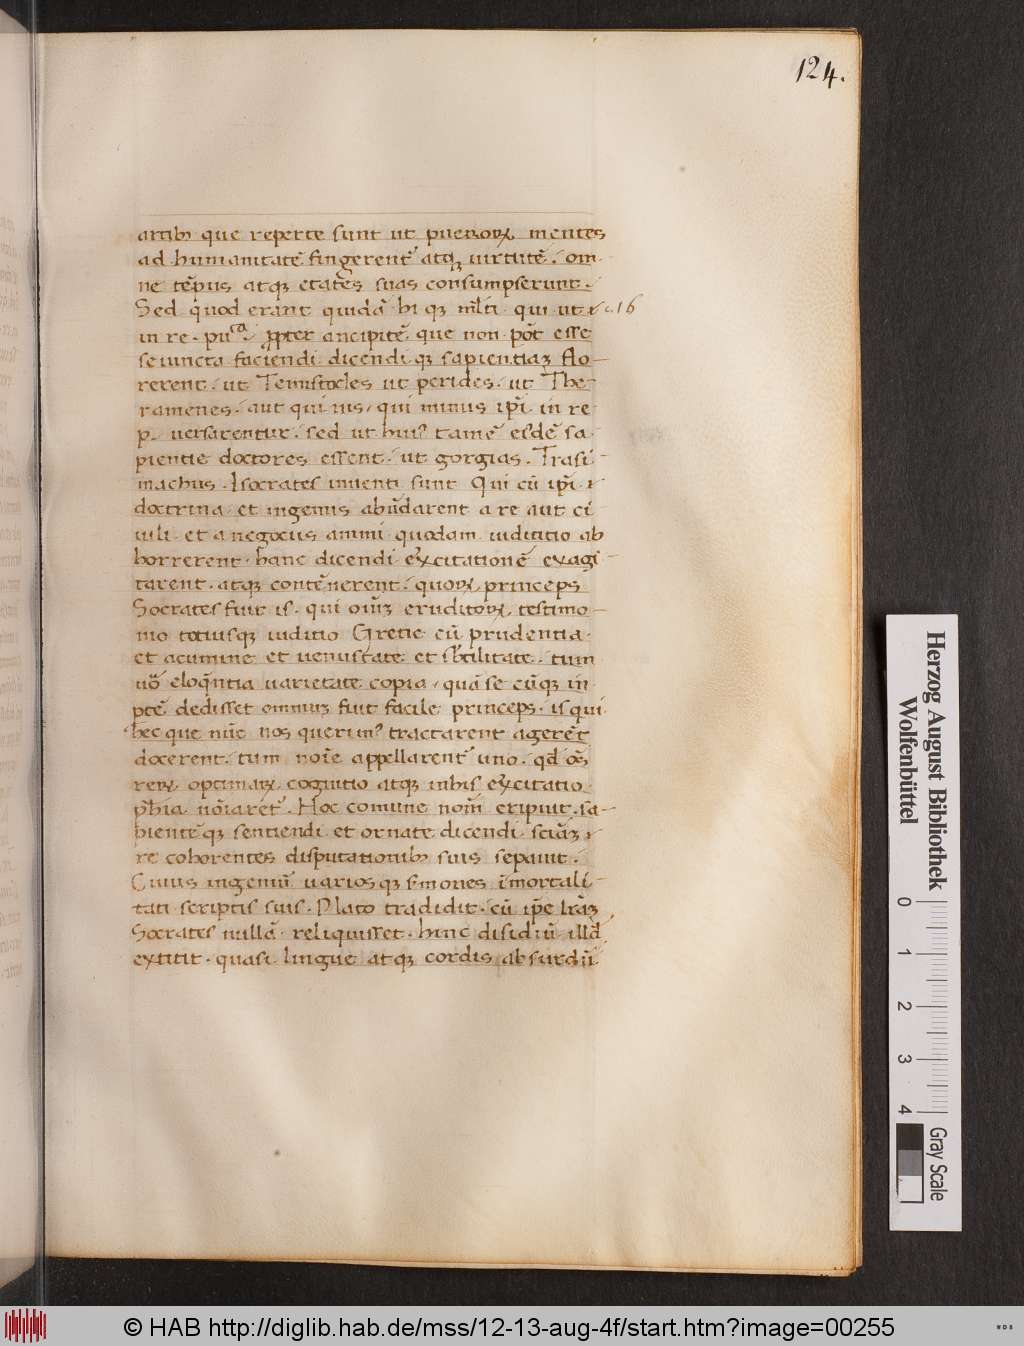 124.
artib; que reperte sunt ut puerorꝝ mentes
ad humanitatē fingerent atqꝫ uirtutē. om
ne tēpus atqꝫ etates suas consumpserunt.
Sed quod erant quidā hi qꝫ ml̄ti qui ut
c. 16
in re. pu.ᶜᵃ ꝓpter ancipitē que non pōt esse
seiuncta faciendi dicendi qꝫ sapientiaꝫ flo
rerent. ut Temistocles ut pericles. ut The
ramenes. aut qui iis, qui minus ip̄i in re
p. uersarentur. sed ut huiꝰ tamē eisdē sa
pientie doctores essent. ut gorgias. Trasi
machus. Isocrates inuenti sunt Qui cū ip̄i
doctrina et ingeniis abūdarent a re aut ci
uili et a negociis animi quodam iudititio ab
horrerent. hanc dicendi exercitationē exagi
tarent. atqꝫ contēnerent. quorꝝ princeps
Socrates fuit is. qui oīuꝫ eruditorꝝ testimo
nio totiusqꝫ iuditio Gretie cū prudentia.
et acumine et uenustate et sb̄tilitate. tum
uō eloq̄ntia uarietate copia, quā se cūqꝫ in
ptē dedisset omniuꝫ fuit facile princeps. is qui
hec que nūc nos querimꝰ tractarent agerēt
docerent. tum noīe appellarent uno. qd oīs
rerꝝ optimarꝝ cognitio atqꝫ in his exercitatio
ph̄ia nōiaret. Hoc comune nomī eripuit. sa
pientē qꝫ sentiendi et ornate dicendi sciāꝫ
re coherentes disputationib; suis sepauit.
Cuius ingeniū uarios qꝫ s̄mones īmortali
tati scriptis suis. Plato tradidit. cū ip̄e lrāꝫ
Socrates nullā reliquisset. hinc disidiū illd̄
extitit. quasi lingue atqꝫ cordis absurdū
Herzog August Bibliothek
Wolfenbüttel
0 1 2 3 4
Gray Scale
© HAB http://diglib.hab.de/mss/12-13-aug-4f/start.htm?image=00255